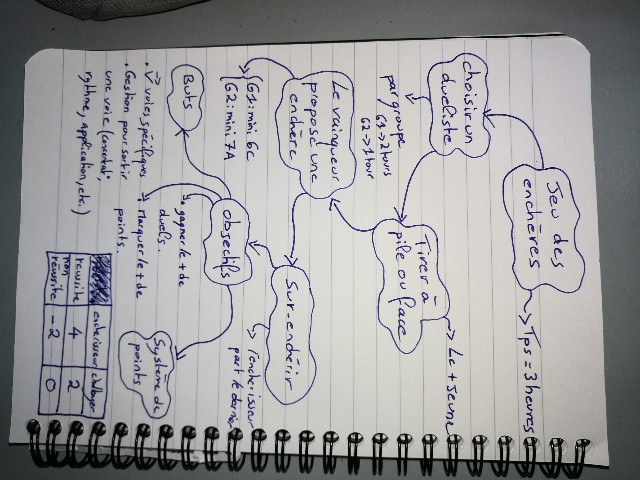 Jeu des
enchères
-> Tps = 3 heures
choisir un
dueliste
par groupe
G1 -> 2 hours
G2 -> 1 hour
Tirer à
pile ou face
-> Le + Jeune
Le vainqueur
propose une
enchère
G1: mini 6c
G2: mini 7A
Sur-enchérir
-> l'enchérisseur
part le dernier
Objectifs
. gagner le + de
duels.
. Marquer le + de
points.
Buts
. V voies spécifiques
. Gestion pour sortir
une voie (
rythme, application, etc.)
Système de
points
enchérisseur
réussite 4 2
non
réussite -2 0